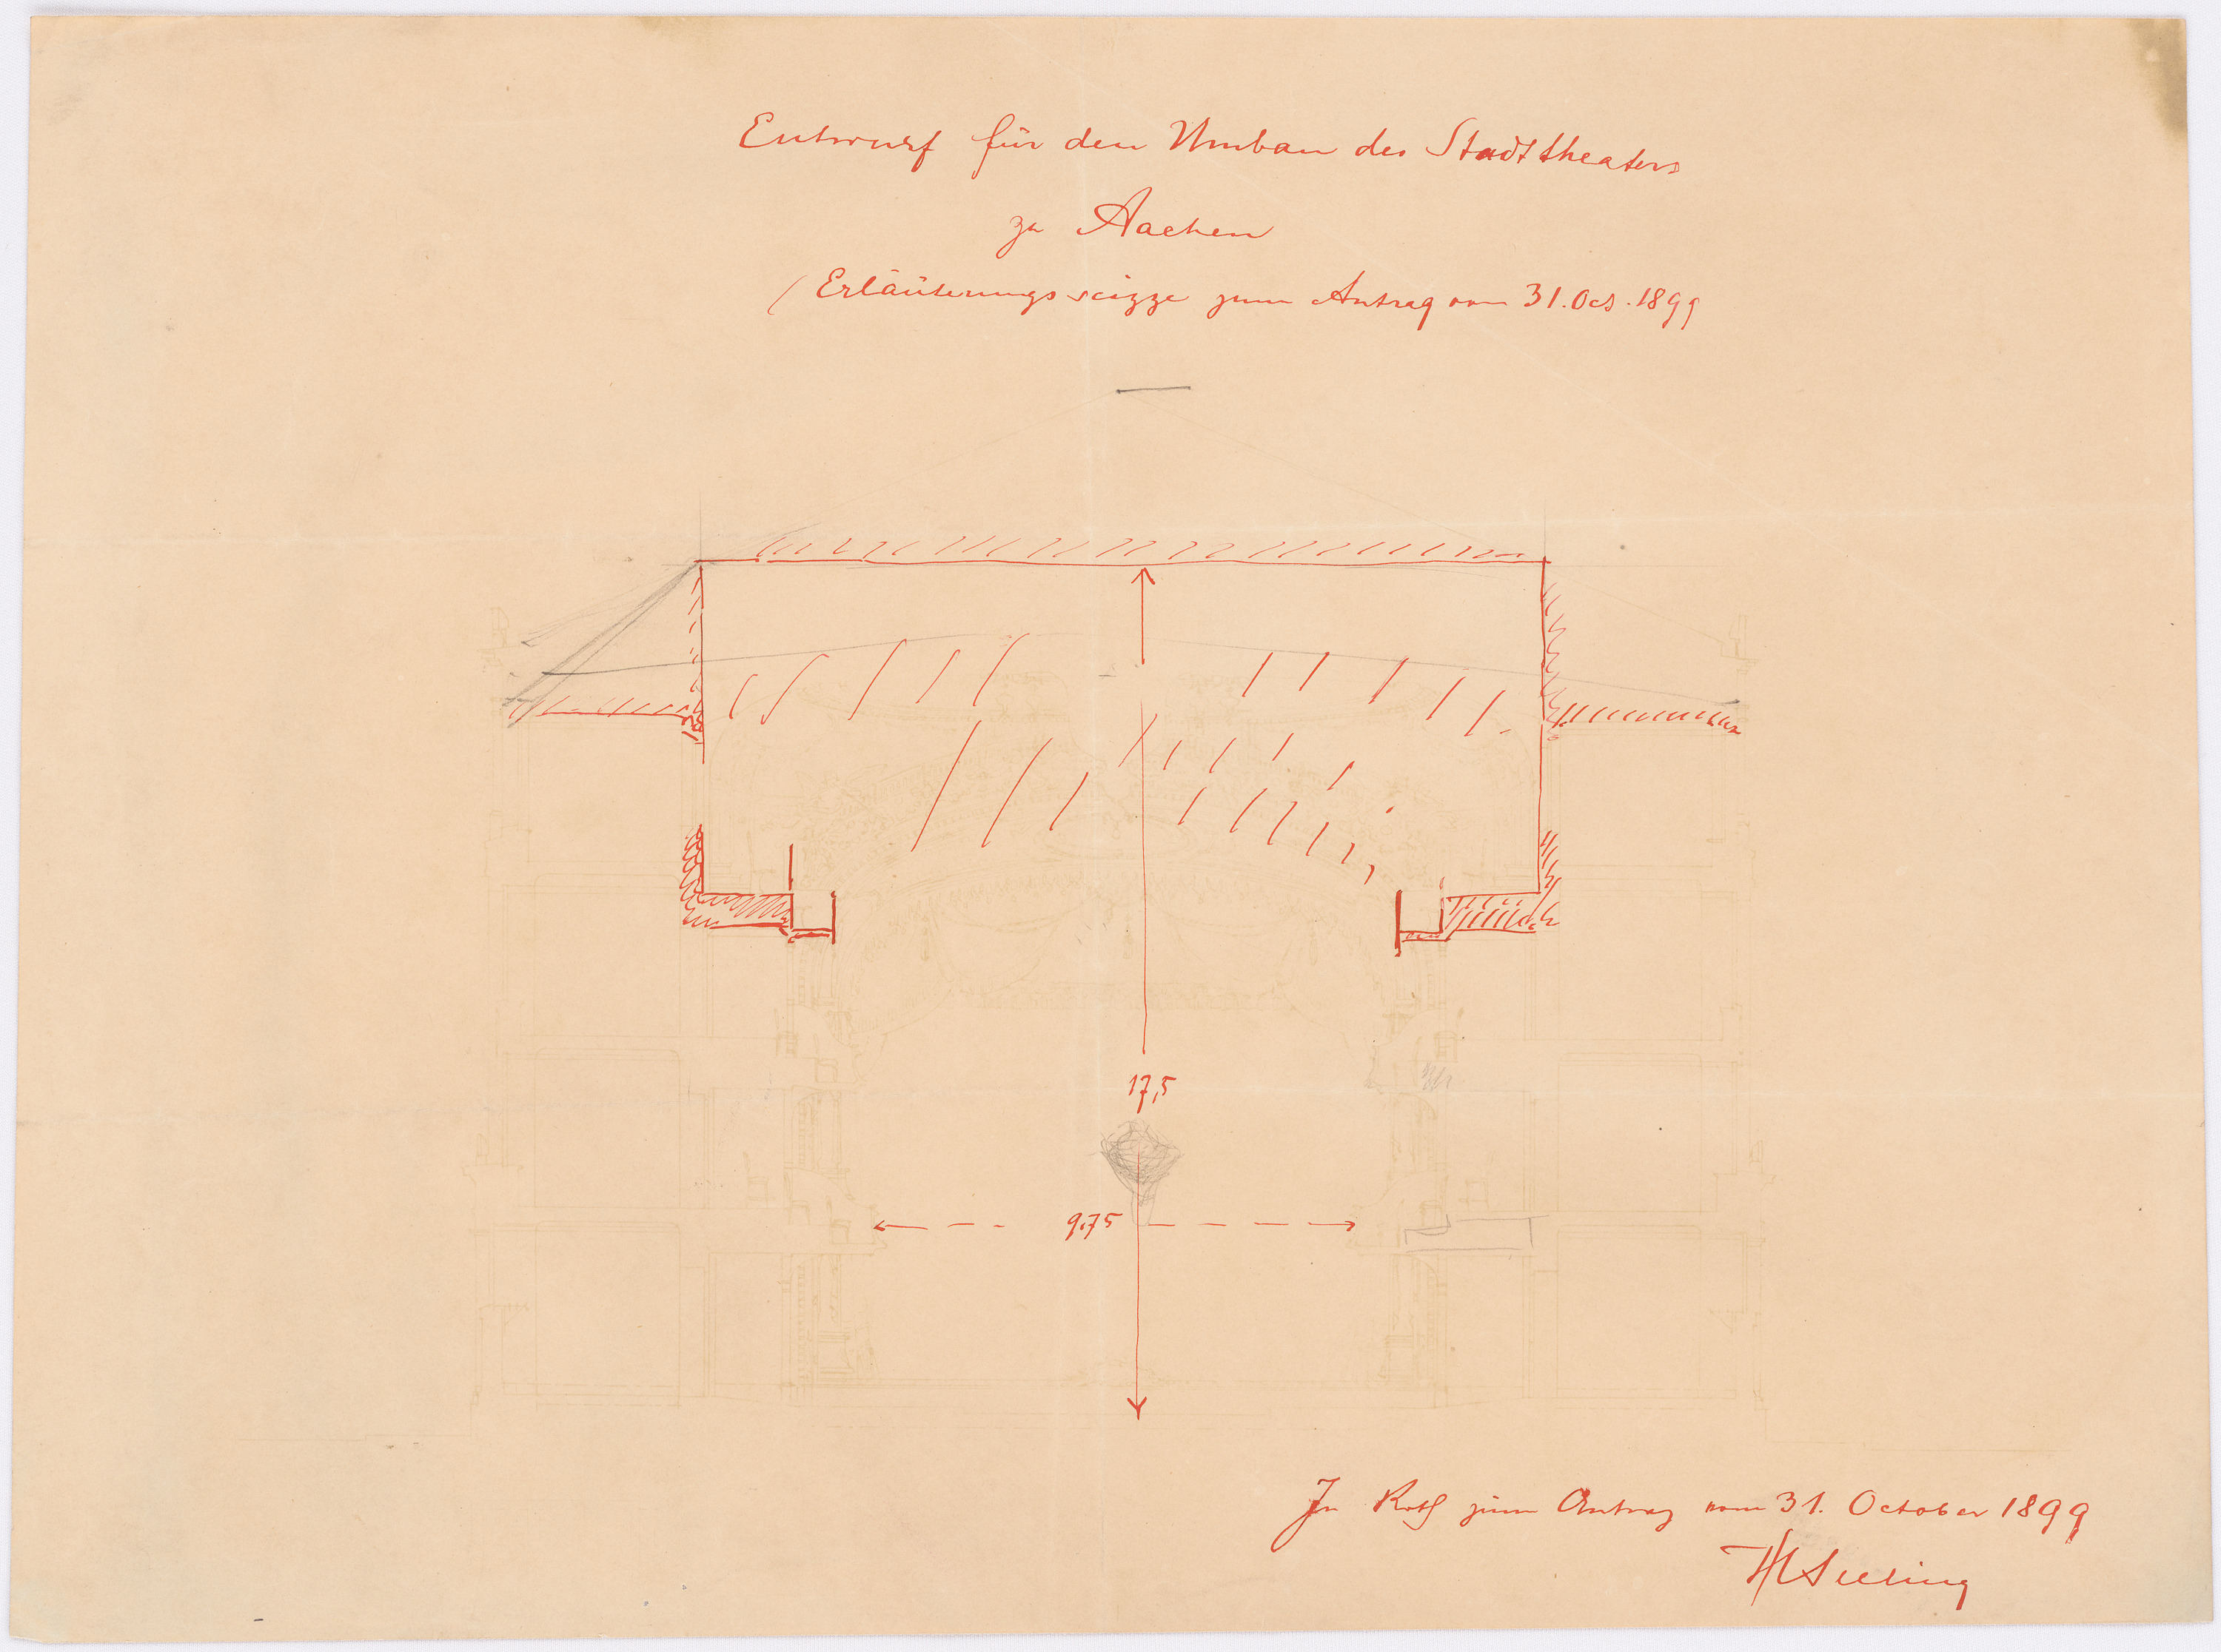 Entwurf für den Umbau des Stadttheaters
zu Aachen
(Erläuterungsscizze zum Antrag vom 31. Oct. 1899
17,5
9,75
In Roth zum Antrag vom 31. October 1899
H Seeling